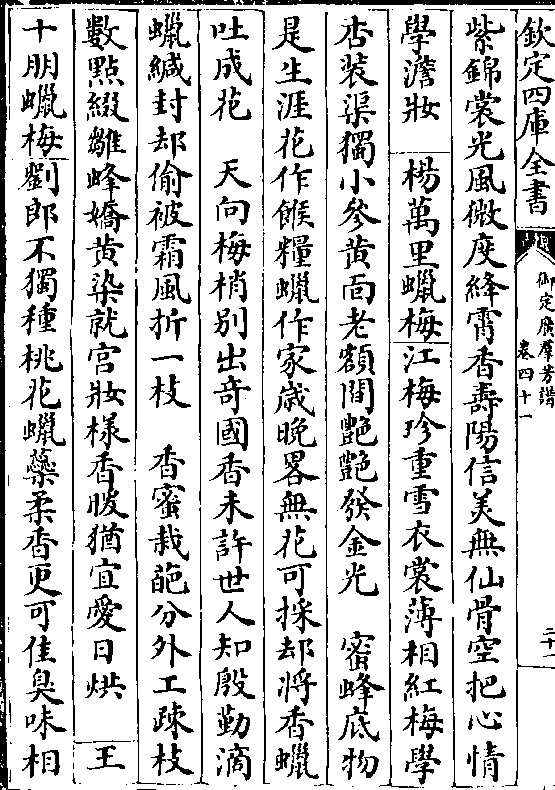 欽定四庫全書
御定廣羣芳譜
卷四十一
二十一
紫錦裳光風微度絳霄香壽陽信美無仙骨空把心情
學澹妝 楊萬里蠟梅江梅珍重雪衣裳薄相紅梅學
杏裝渠獨小參黄面老額間艷艷發金光 蜜蜂底物
是生涯花作餱糧蠟作家歲晚畧無花可採却將香蠟
吐成花 天向梅梢别出奇國香未許世人知殷勤滴
蠟緘封却偷被霜風折一枝 香蜜栽葩分外工疎枝
數點綴雛蜂嬌黄染就宫妝樣香暖猶宜愛日烘 王
十朋蠟梅劉郎不獨種桃花蠟蘂柔香更可佳臭味相